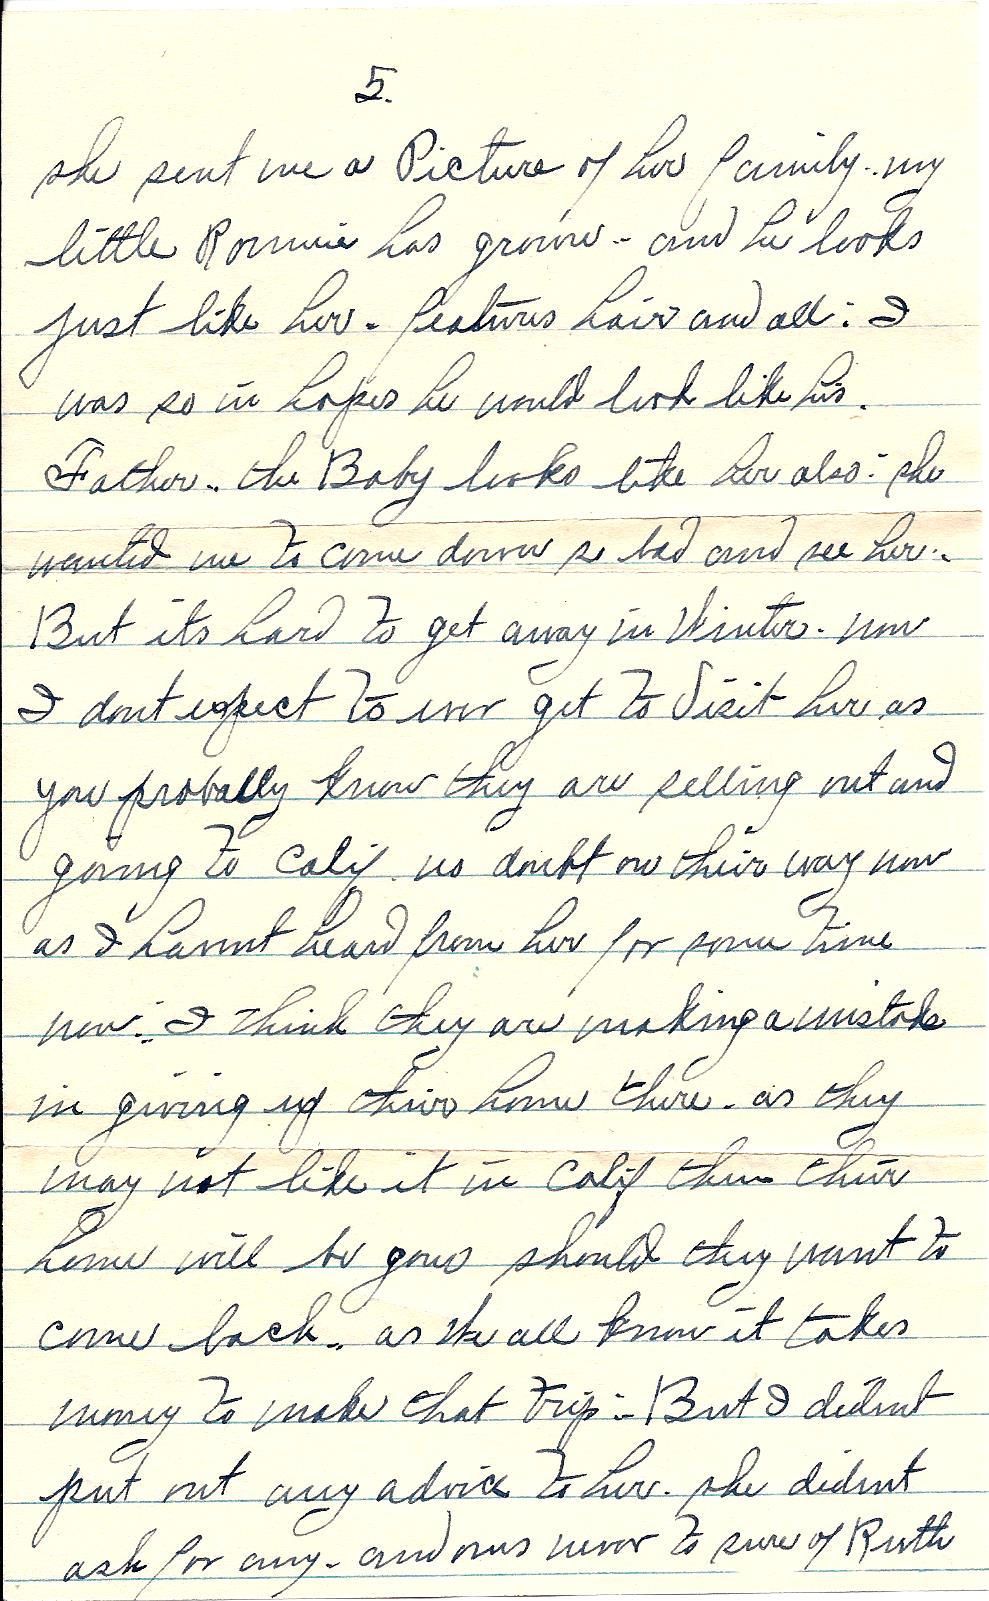 5.
she sent me a Picture of her family.. my
little Ronnie has grown - and he looks
just like her. features hair and all: I
was so in hopes he would look like his.
Father.. the Baby looks like her also: she
wanted me to come down so bad and see her..
But its hard to get away in Winter. now
I dont expect to ever get to Visit her as
you probally know they are selling out and
going to Calif. no doubt on their way now
as I havent heard from her for some time
now:. I think they are making a mistake
in giving up their home there. as they
may not like it in Calif then their
home will be gone should they want to
come back.. as We all know it takes
money to make that trip:- But I didnt
put out any advice to her. she didnt
ask for any. and ones never to sure of Ruth